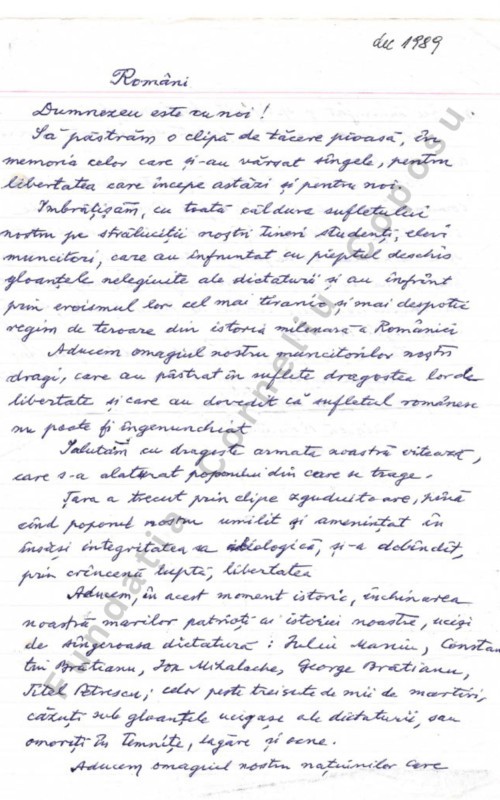 dec 1989
Români
Dumnezeu este cu noi!
Să păstrăm o clipă de tăcere pioasă, în
memoria celor care și-au vărsat sîngele, pentru
libertatea care începe astăzi și pentru noi.
Îmbrățișăm, cu toată căldura sufletului
nostru pe străluciții noștri tineri studenți, elevi
muncitori, care au înfruntat cu pieptul deschis
gloanțele nelegiuite ale dictaturii și au înfrînt
prin eroismul lor cel mai tiranic și mai despotic
regim de teroare din istoria milenară a României
Aducem omagiul nostru muncitorilor noștri
dragi, care au păstrat în suflete dragostea lor de
libertate și care au dovedit că sufletul românesc
nu poate fi îngenunchiat
Salutăm cu dragoste armata noastră vitează,
care s-a alăturat poporului din care se trage.
Țara a trecut prin clipe zguduitoare, pînă
cînd poporul nostru umilit și amenințat în
însăși integritatea sa biologică, și-a dobîndit,
prin crîncenă luptă, libertatea
Aducem, în acest moment istoric, închinarea
noastră marilor patrioți ai istoriei noastre, uciși
de sîngeroasa dictatură: Iuliu Maniu, Constan
tin Brătianu, Ion Mihalache, George Brătianu,
Titel Petrescu; celor peste treisute de mii de martiri,
căzuți sub gloanțele ucigașe ale dictaturii, sau
omorîți în temnițe, lagăre și ocne.
Aducem omagiul nostru națiunilor care
Fundația Corneliu Coposu